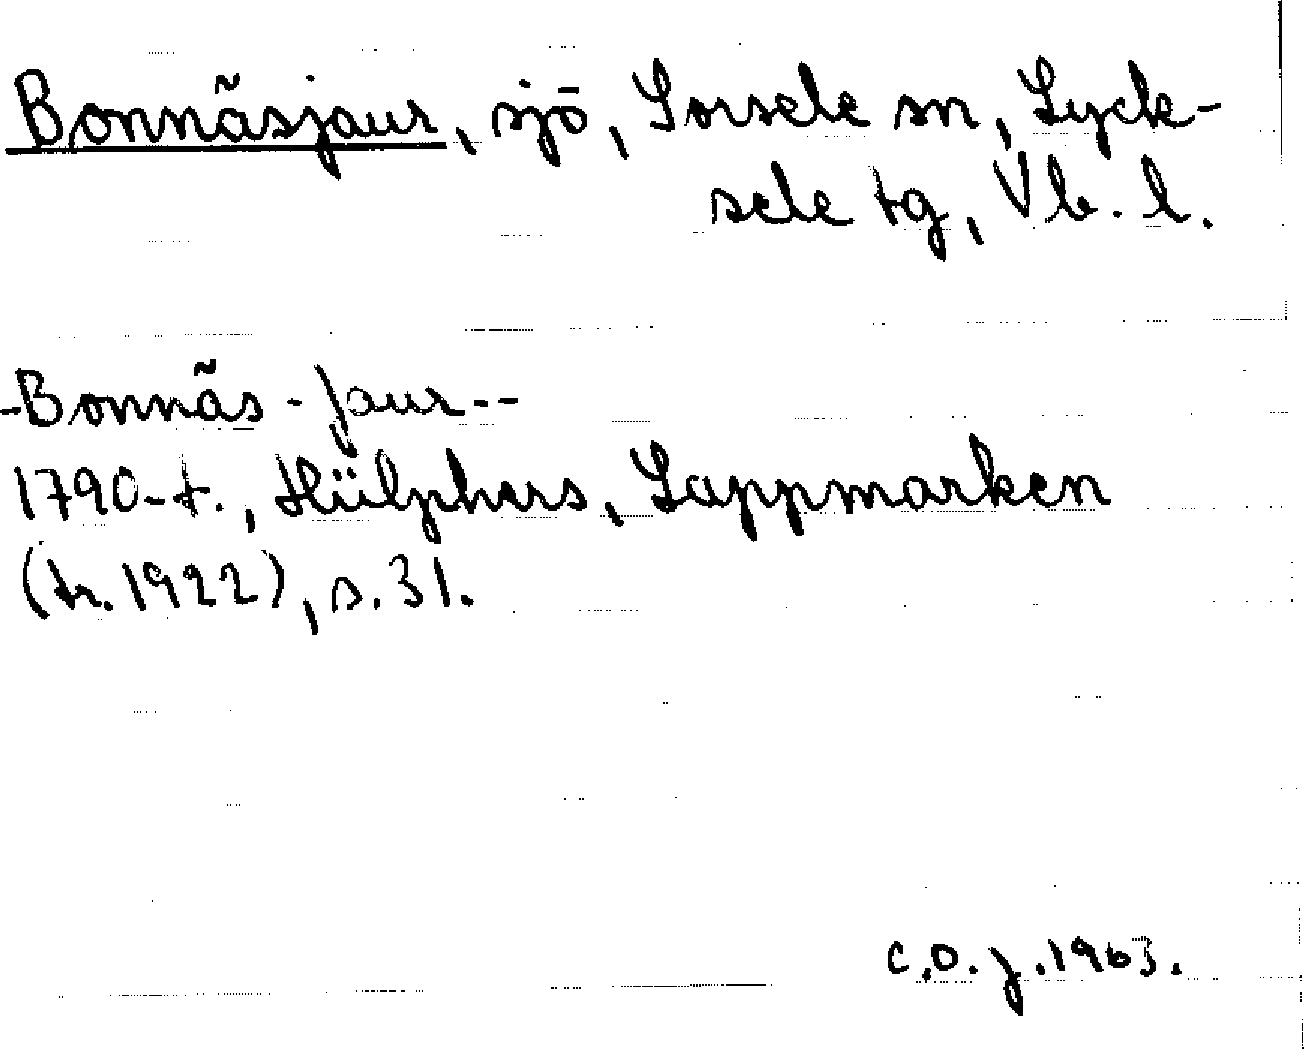 Bonnäsjaur, sjö, Sorsele sn, Lyck-
sele tg, Vb. l.
-Bonnäs-jaur--
1790-t., Hülphers, Lappmarken
(tr. 1922), s. 31.
C.O.J. 1963.